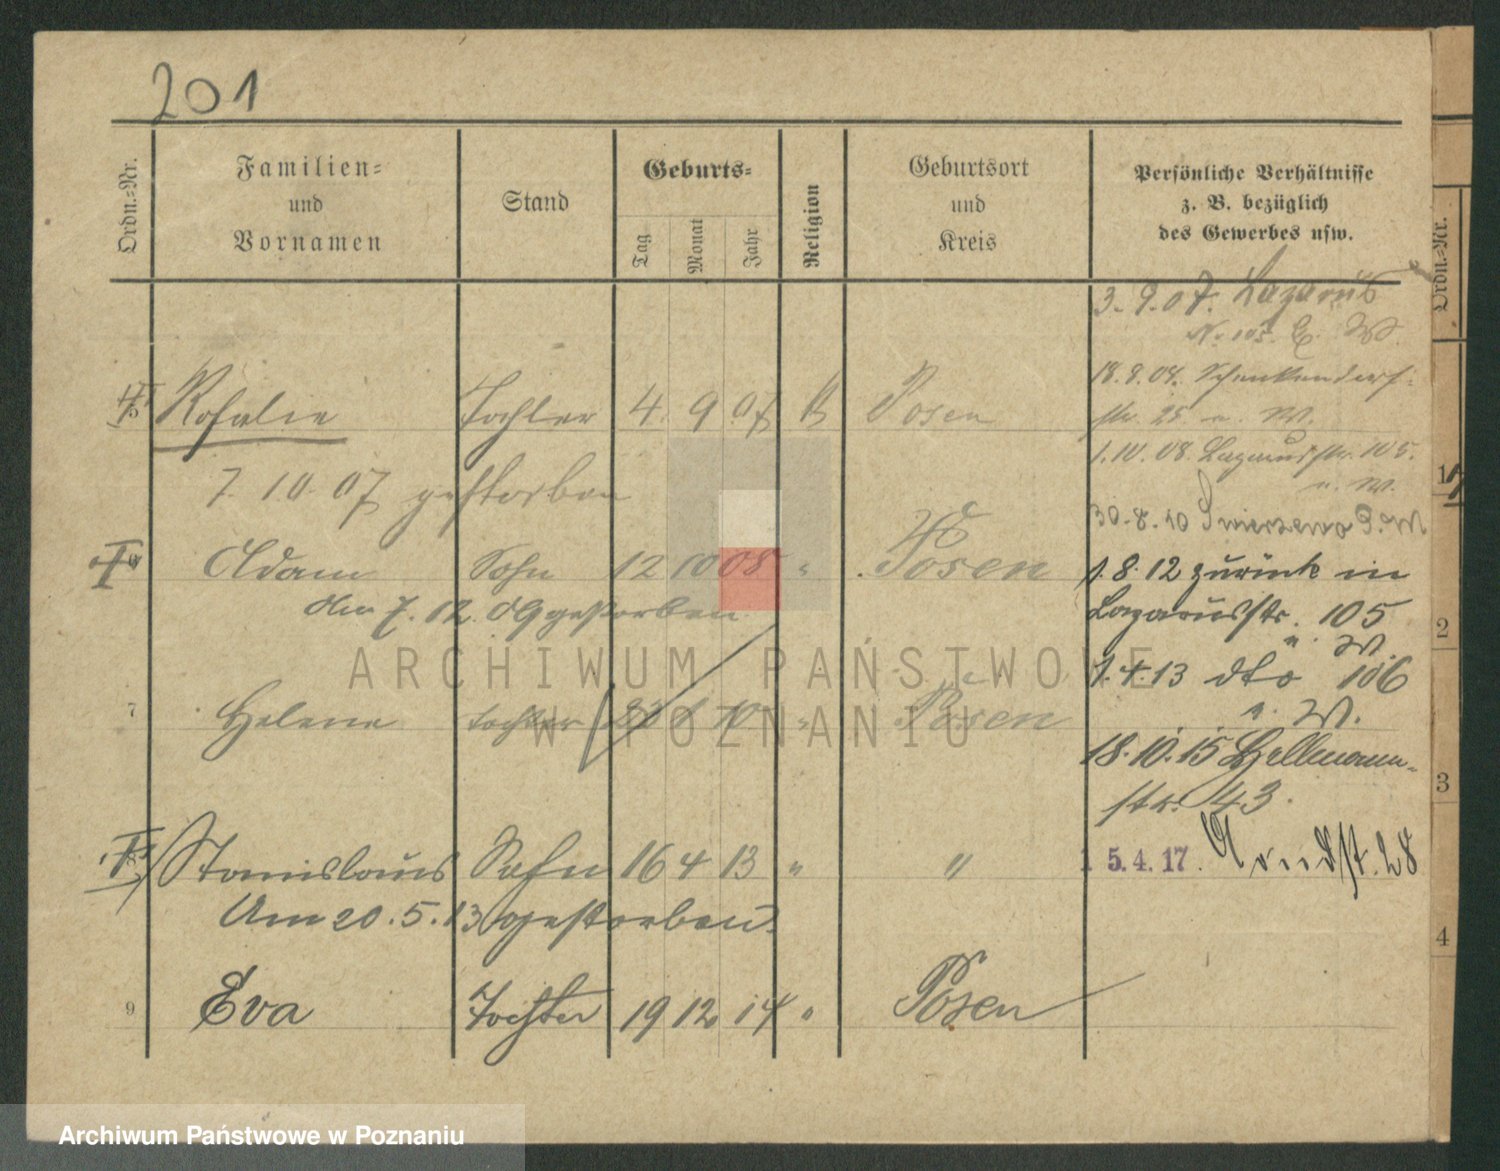 201
Ordn.-Nr.
Familien-
und
Vornamen
Stand
Geburts-
Tag
Monat
Jahr
Religion
Geburtsort
und
Kreis
Persönliche Verhältnisse
z. B. bezüglich
des Gewerbes usw.
Ordn.-Nr.
3.9.07. Lazarus
No 105. W.
Rosalie Tochter 4 9 07 Posen
18.9.07.
str. 25 W.
7. 10. 07 gestorben
1.10.08. Lazarusstr. 105.
W.
30.8.10
Adam Sohn 12 10 08 " Posen
1.8.12 zurück in
Am 7. 12. 09 gestorben
Lazarusstr. 105
W.
1.4.13 dto 106
7 Helene Tochter 10 " Posen
W.
18.10.15 Hellmann-
str. 43.
Stanislaus Sohn 16 4 13 " "
15.4.17. 28
Am 20.5.13 gestorben.
9 Eva Tochter 19 12 14 " Posen
1
2
3
4
ARCHIWUM PAŃSTWOWE
W POZNANIU
Archiwum Państwowe w Poznaniu